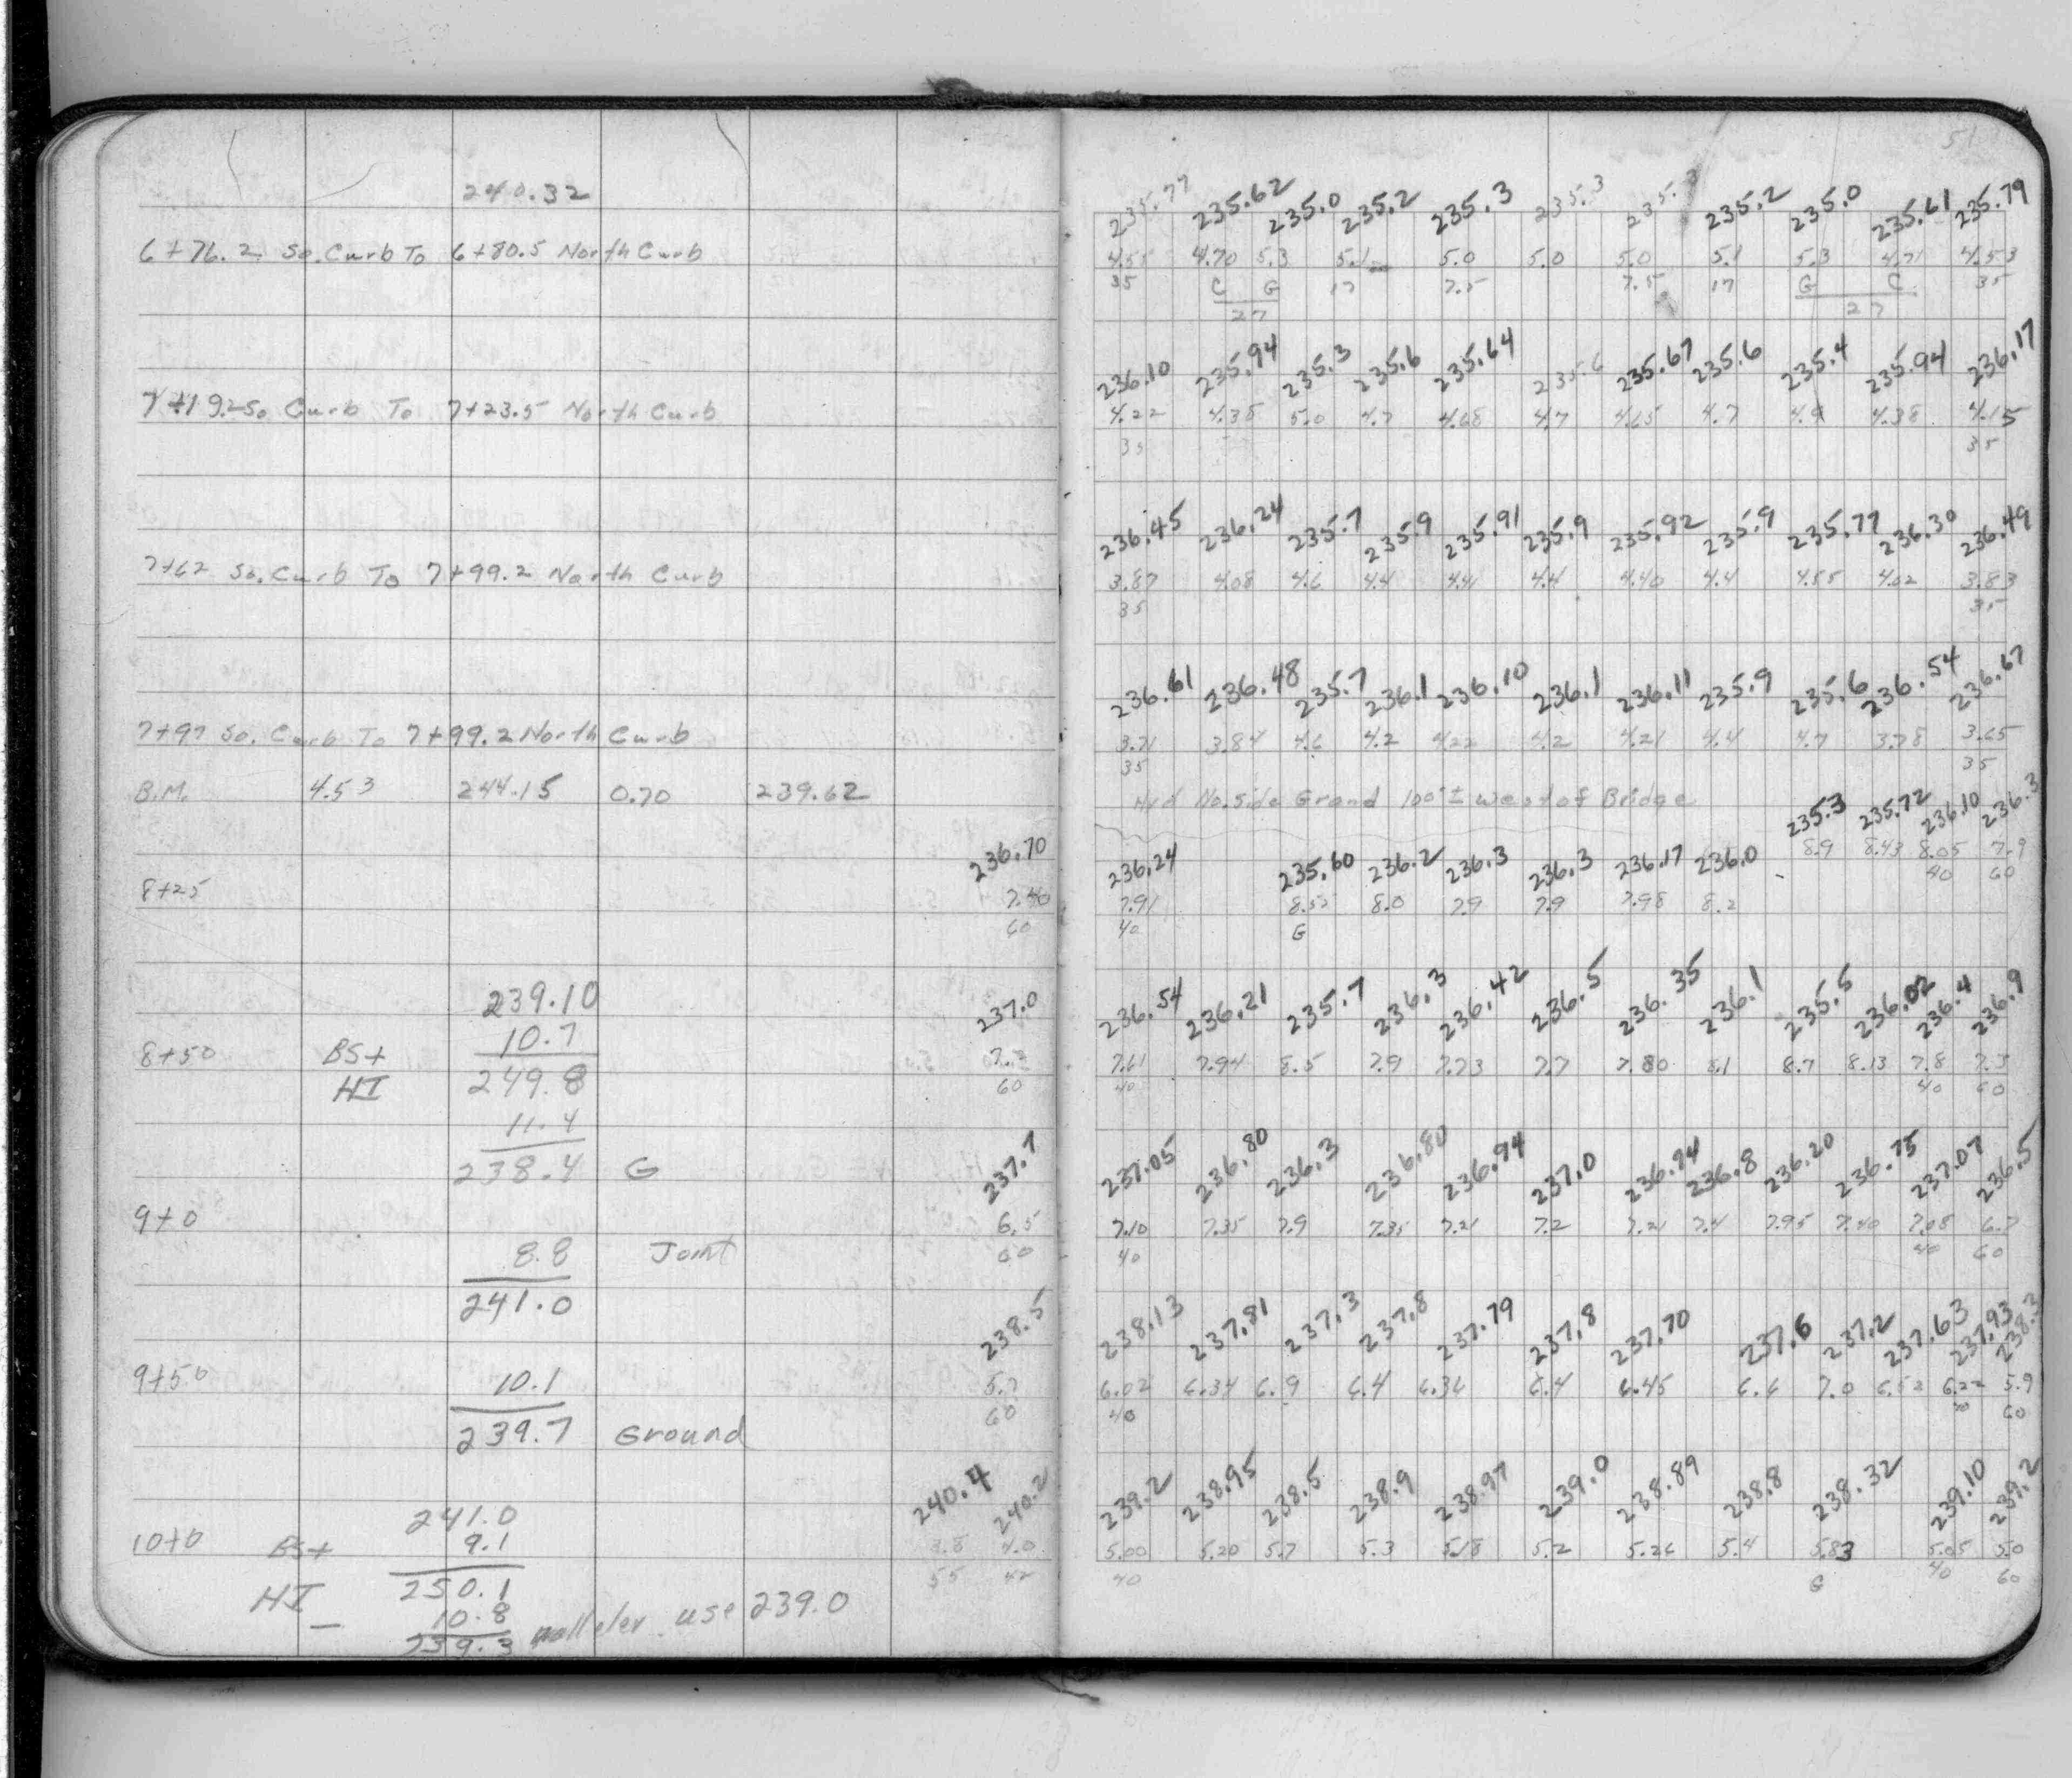 51
240.32
235.77 235.62 235.0 235.2 235.3 235.3 235.3 235.2 235.0 235.61 235.79
6+76.2 So. Curb To 6+80.5 North Curb
4.55 4.70 5.3 5.1 5.0 5.0 5.0 5.1 5.3 4.71 4.53
35 C G 17 7.5 7.5 17 G C 35
27 27
236.10 235.94 235.3 235.6 235.64 235.6 235.67 235.6 235.4 235.94 236.17
7+19.2 So Curb To 7+23.5 North Curb
4.22 4.38 5.0 4.7 4.68 4.7 4.65 4.7 4.9 4.38 4.15
35 35
236.45 236.24 235.7 235.9 235.91 235.9 235.92 235.9 235.77 236.30 236.49
7+62 So. Curb To 7+99.2 North Curb
3.87 4.08 4.6 4.4 4.41 4.4 4.40 4.4 4.55 4.02 3.83
35 35
236.61 236.48 235.7 236.1 236.10 236.1 236.11 235.9 235.6 236.54 236.67
7+97 So. Curb To 7+99.2 North Curb
3.71 3.84 4.6 4.2 4.22 4.2 4.21 4.4 4.7 3.78 3.65
35 35
B.M. 4.53 244.15 0.70 239.62
Hyd No. side Grand 100'± west of Bridge
235.3 235.72 236.10 236.3
8.9 8.43 8.05 7.9
40 60
236.70 236.24 235.60 236.2 236.3 236.3 236.17 236.0
8+25
7.40 7.91 8.55 8.0 7.9 7.9 7.98 8.2
60 40 G
239.10
237.0 236.54 236.21 235.7 236.3 236.42 236.5 236.35 236.1 235.5 236.02 236.4 236.9
10.7
8+50 BS+
7.61 7.94 8.5 7.9 7.73 7.7 7.80 8.1 8.7 8.13 7.8 7.3
HI 249.8
60 40 40 60
11.4
238.4 G
237.7 237.05 236.80 236.3 236.80 236.94 237.0 236.94 236.8 236.20 236.75 237.07 236.5
9+0
6.5 7.10 7.35 7.9 7.35 7.21 7.2 7.21 7.4 7.95 7.40 7.08 6.7
60 40 40 60
8.8 Joint
241.0
238.5 238.13 237.81 237.3 237.8 237.79 237.8 237.70 237.6 237.2 237.63 237.93 238.3
9+50 10.1
5.7 6.02 6.34 6.9 6.4 6.36 6.4 6.45 6.6 7.0 6.52 6.22 5.9
60 40 40 60
239.7 Ground
240.4 240.2 239.2 238.95 238.5 238.9 238.97 239.0 238.89 238.8 238.32 239.10 239.2
241.0
10+0 BS+ 9.1
3.8 4.0 5.00 5.20 5.7 5.3 5.18 5.2 5.26 5.4 5.83 5.05 5.0
55 42 40 G 40 60
HI 250.1
— 10.8
239.3 use 239.0